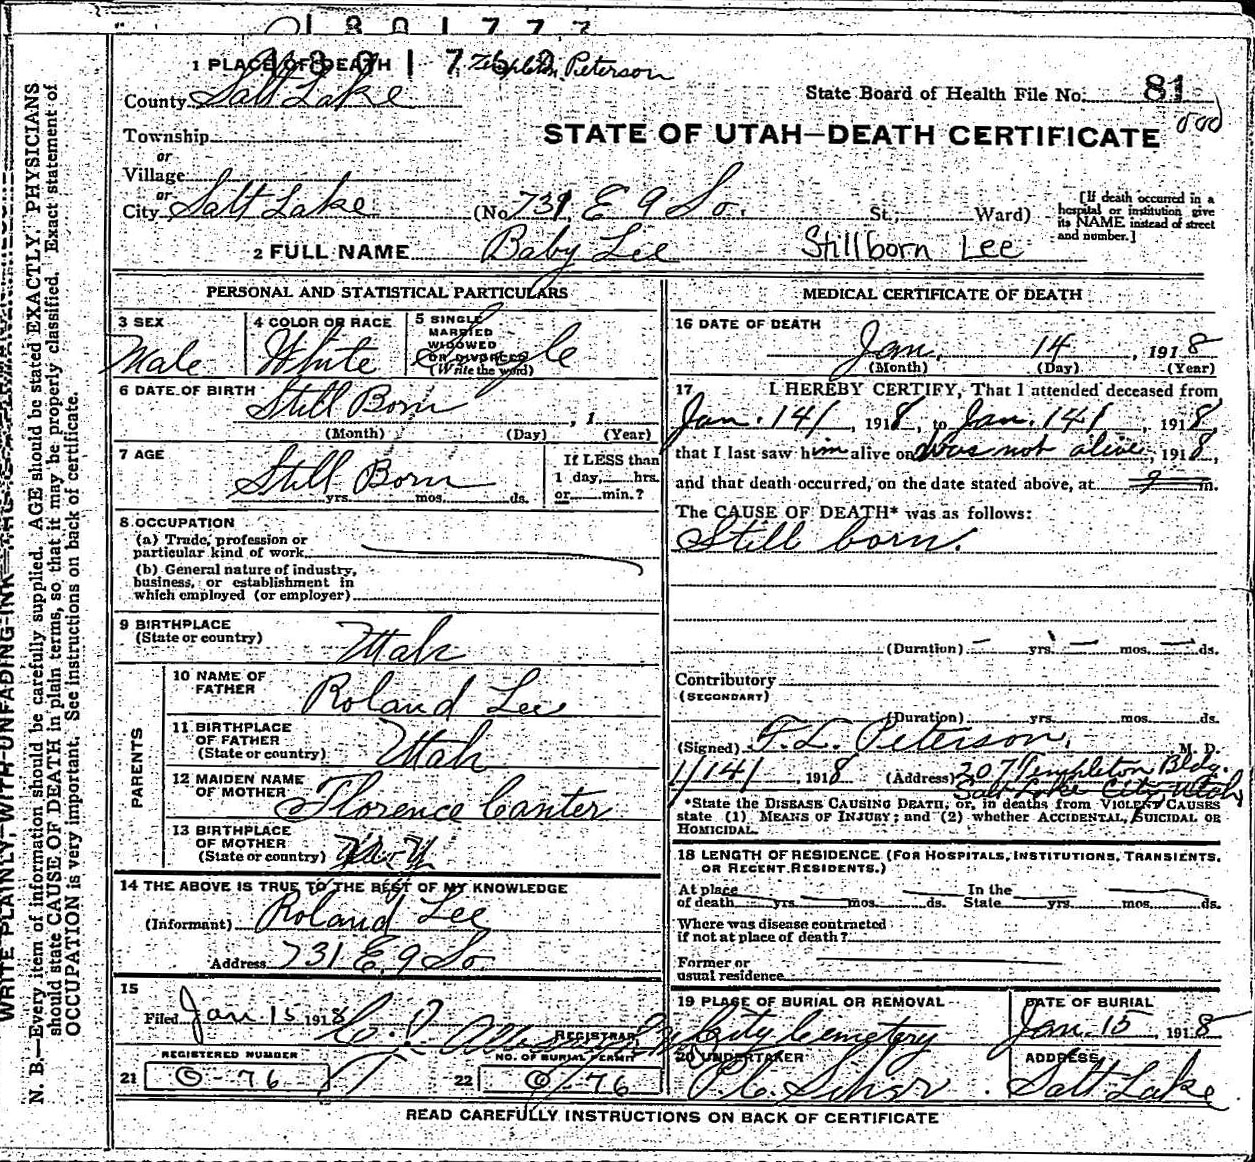 1801777
1 PLACE OF DEATH Templeton Peterson
County Salt Lake
State Board of Health File No. 81
Township
or
STATE OF UTAH—DEATH CERTIFICATE
Village
or
City Salt Lake (No. 731 E 9 So. St; Ward)
[If death occurred in a
hospital or institution give
its NAME instead of street
and number.]
2 FULL NAME Baby Lee Stillborn Lee
PERSONAL AND STATISTICAL PARTICULARS
3 SEX Male
4 COLOR OR RACE White
5 SINGLE
MARRIED
WIDOWED
OR DIVORCED
(Write the word) Single
6 DATE OF BIRTH Still Born , 1
(Month) (Day) (Year)
7 AGE Still Born
yrs. mos. ds.
If LESS than
1 day, hrs.
or min.?
8 OCCUPATION
(a) Trade, profession or
particular kind of work
(b) General nature of industry,
business, or establishment in
which employed (or employer)
9 BIRTHPLACE
(State or country) Utah
PARENTS
10 NAME OF
FATHER Roland Lee
11 BIRTHPLACE
OF FATHER
(State or country) Utah
12 MAIDEN NAME
OF MOTHER Florence Canter
13 BIRTHPLACE
OF MOTHER
(State or country)
14 THE ABOVE IS TRUE TO THE BEST OF MY KNOWLEDGE
(Informant) Roland Lee
Address 731 E. 9 So.
15
Filed Jan 15 1918
REGISTRAR
REGISTERED NUMBER
21 0-76
NO. OF BURIAL PERMIT
22 0-76
MEDICAL CERTIFICATE OF DEATH
16 DATE OF DEATH
Jan. 14 , 1918
(Month) (Day) (Year)
17 I HEREBY CERTIFY, That I attended deceased from
Jan. 14/ , 1918, to Jan. 14/ 1918,
that I last saw him alive on Was not alive, 1918,
and that death occurred, on the date stated above, at m.
The CAUSE OF DEATH* was as follows:
Still born.
(Duration) yrs. mos. ds.
Contributory
(SECONDARY)
(Duration) yrs. mos. ds.
(Signed) F. L. Peterson, M. D.
1/14/ , 1918 (Address) 207 Templeton Bldg.
Salt Lake City Utah
*State the DISEASE CAUSING DEATH, or, in deaths from VIOLENT CAUSES
state (1) MEANS OF INJURY; and (2) whether ACCIDENTAL, SUICIDAL OR
HOMICIDAL.
18 LENGTH OF RESIDENCE (FOR HOSPITALS, INSTITUTIONS, TRANSIENTS,
OR RECENT RESIDENTS.)
At place
of death yrs. mos. ds.
In the
State yrs. mos. ds.
Where was disease contracted
if not at place of death?
Former or
usual residence
19 PLACE OF BURIAL OR REMOVAL
City Cemetery
DATE OF BURIAL
Jan. 15 1918
20 UNDERTAKER
ADDRESS
Salt Lake
READ CAREFULLY INSTRUCTIONS ON BACK OF CERTIFICATE
WRITE PLAINLY, WITH UNFADING INK
N. B.—Every item of information should be carefully supplied. AGE should be stated EXACTLY. PHYSICIANS
should state CAUSE OF DEATH in plain terms, so that it may be properly classified. Exact statement of
OCCUPATION is very important. See instructions on back of certificate.